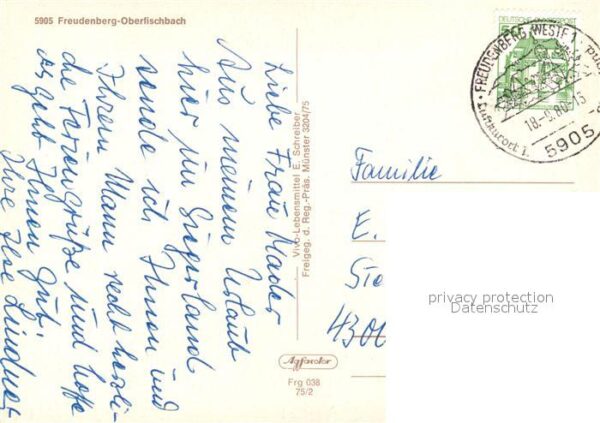 5905 Freudenberg-Oberfischbach
Liebe Frau Mader
Aus meinem Urlaub
hier im Siegerland
sende ich Ihnen und
Ihrem Mann recht herzli-
che Feriengrüße und hoffe
es geht Ihnen gut.
Ihre Ilse Lindner
Vivo-Lebensmittel E. Schreiber
Freigeg. d. Reg.-Präs. Münster 3204/75
Agfacolor
Frg 038
75/2
DEUTSCHE BUNDESPOST
FREUDENBERG, WESTF 1
18.-8.80-13
Luftkurort i.
5905
Familie
E.
Sie
4300
privacy protection
Datenschutz